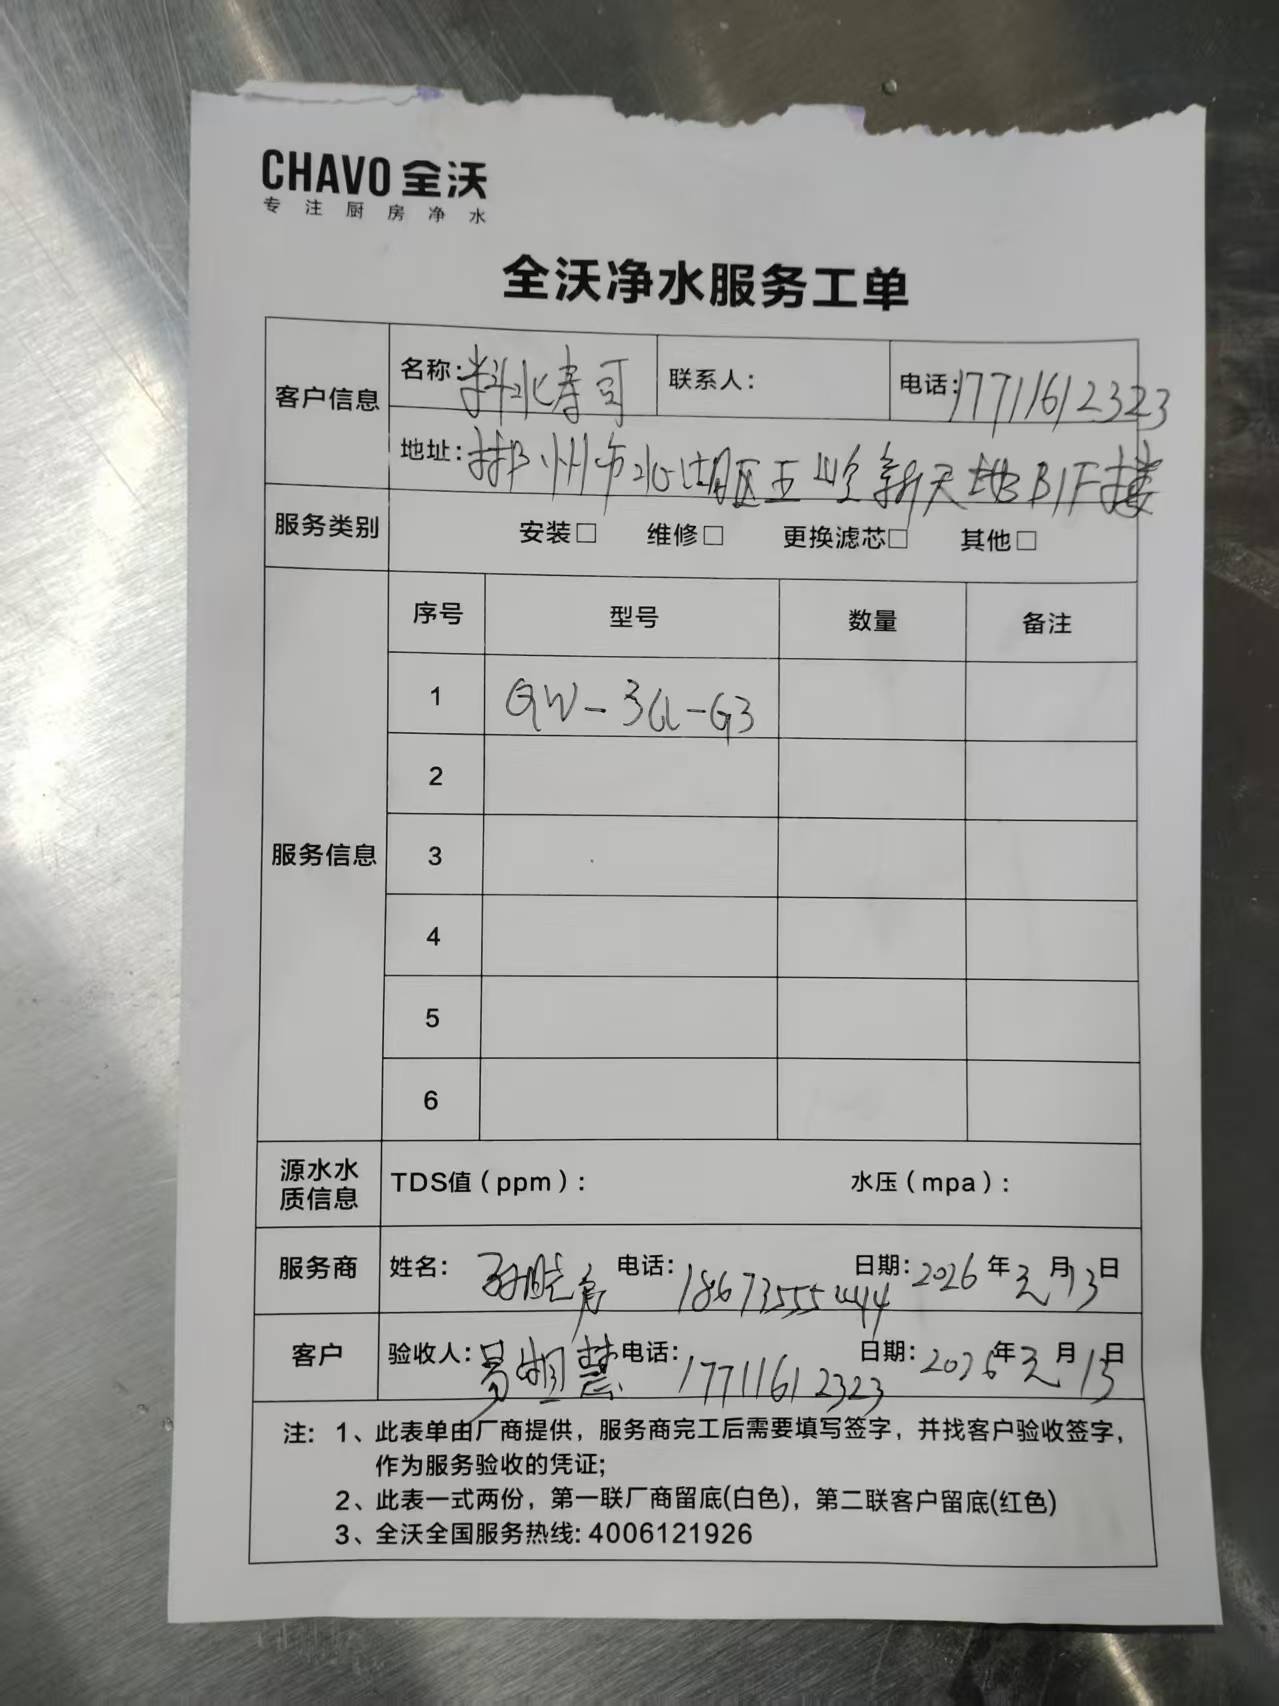 CHAVO 全沃
专注厨房净水
全沃净水服务工单
客户信息
名称: 料水寿司 联系人: 电话: 17711612323
地址: 郴州市北湖区五岭新天地B1F楼
服务类别 安装□ 维修□ 更换滤芯□ 其他□
服务信息
序号 型号 数量 备注
1 QW-3G-G3
2
3
4
5
6
源水水质信息 TDS值(ppm): 水压(mpa):
服务商 姓名: 电话: 18673555444 日期: 2026年元月13日
客户 验收人: 易 慧 电话: 17711612323 日期: 2026年元月13日
注: 1、此表单由厂商提供，服务商完工后需要填写签字，并找客户验收签字，
作为服务验收的凭证;
2、此表一式两份，第一联厂商留底(白色)，第二联客户留底(红色)
3、全沃全国服务热线: 4006121926